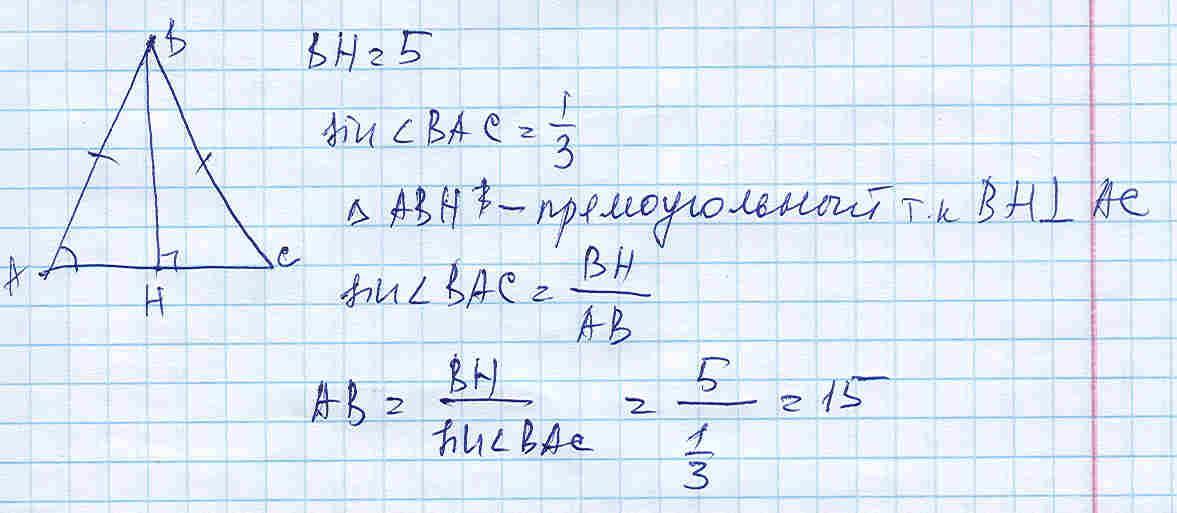 B
A
H
C
BH = 5
sin < BAC = 1/3
Δ ABH - прямоугольный т.к BH ⊥ AC
sin < BAC = BH/AB
AB = BH/sin < BAC = 5/(1/3) = 15